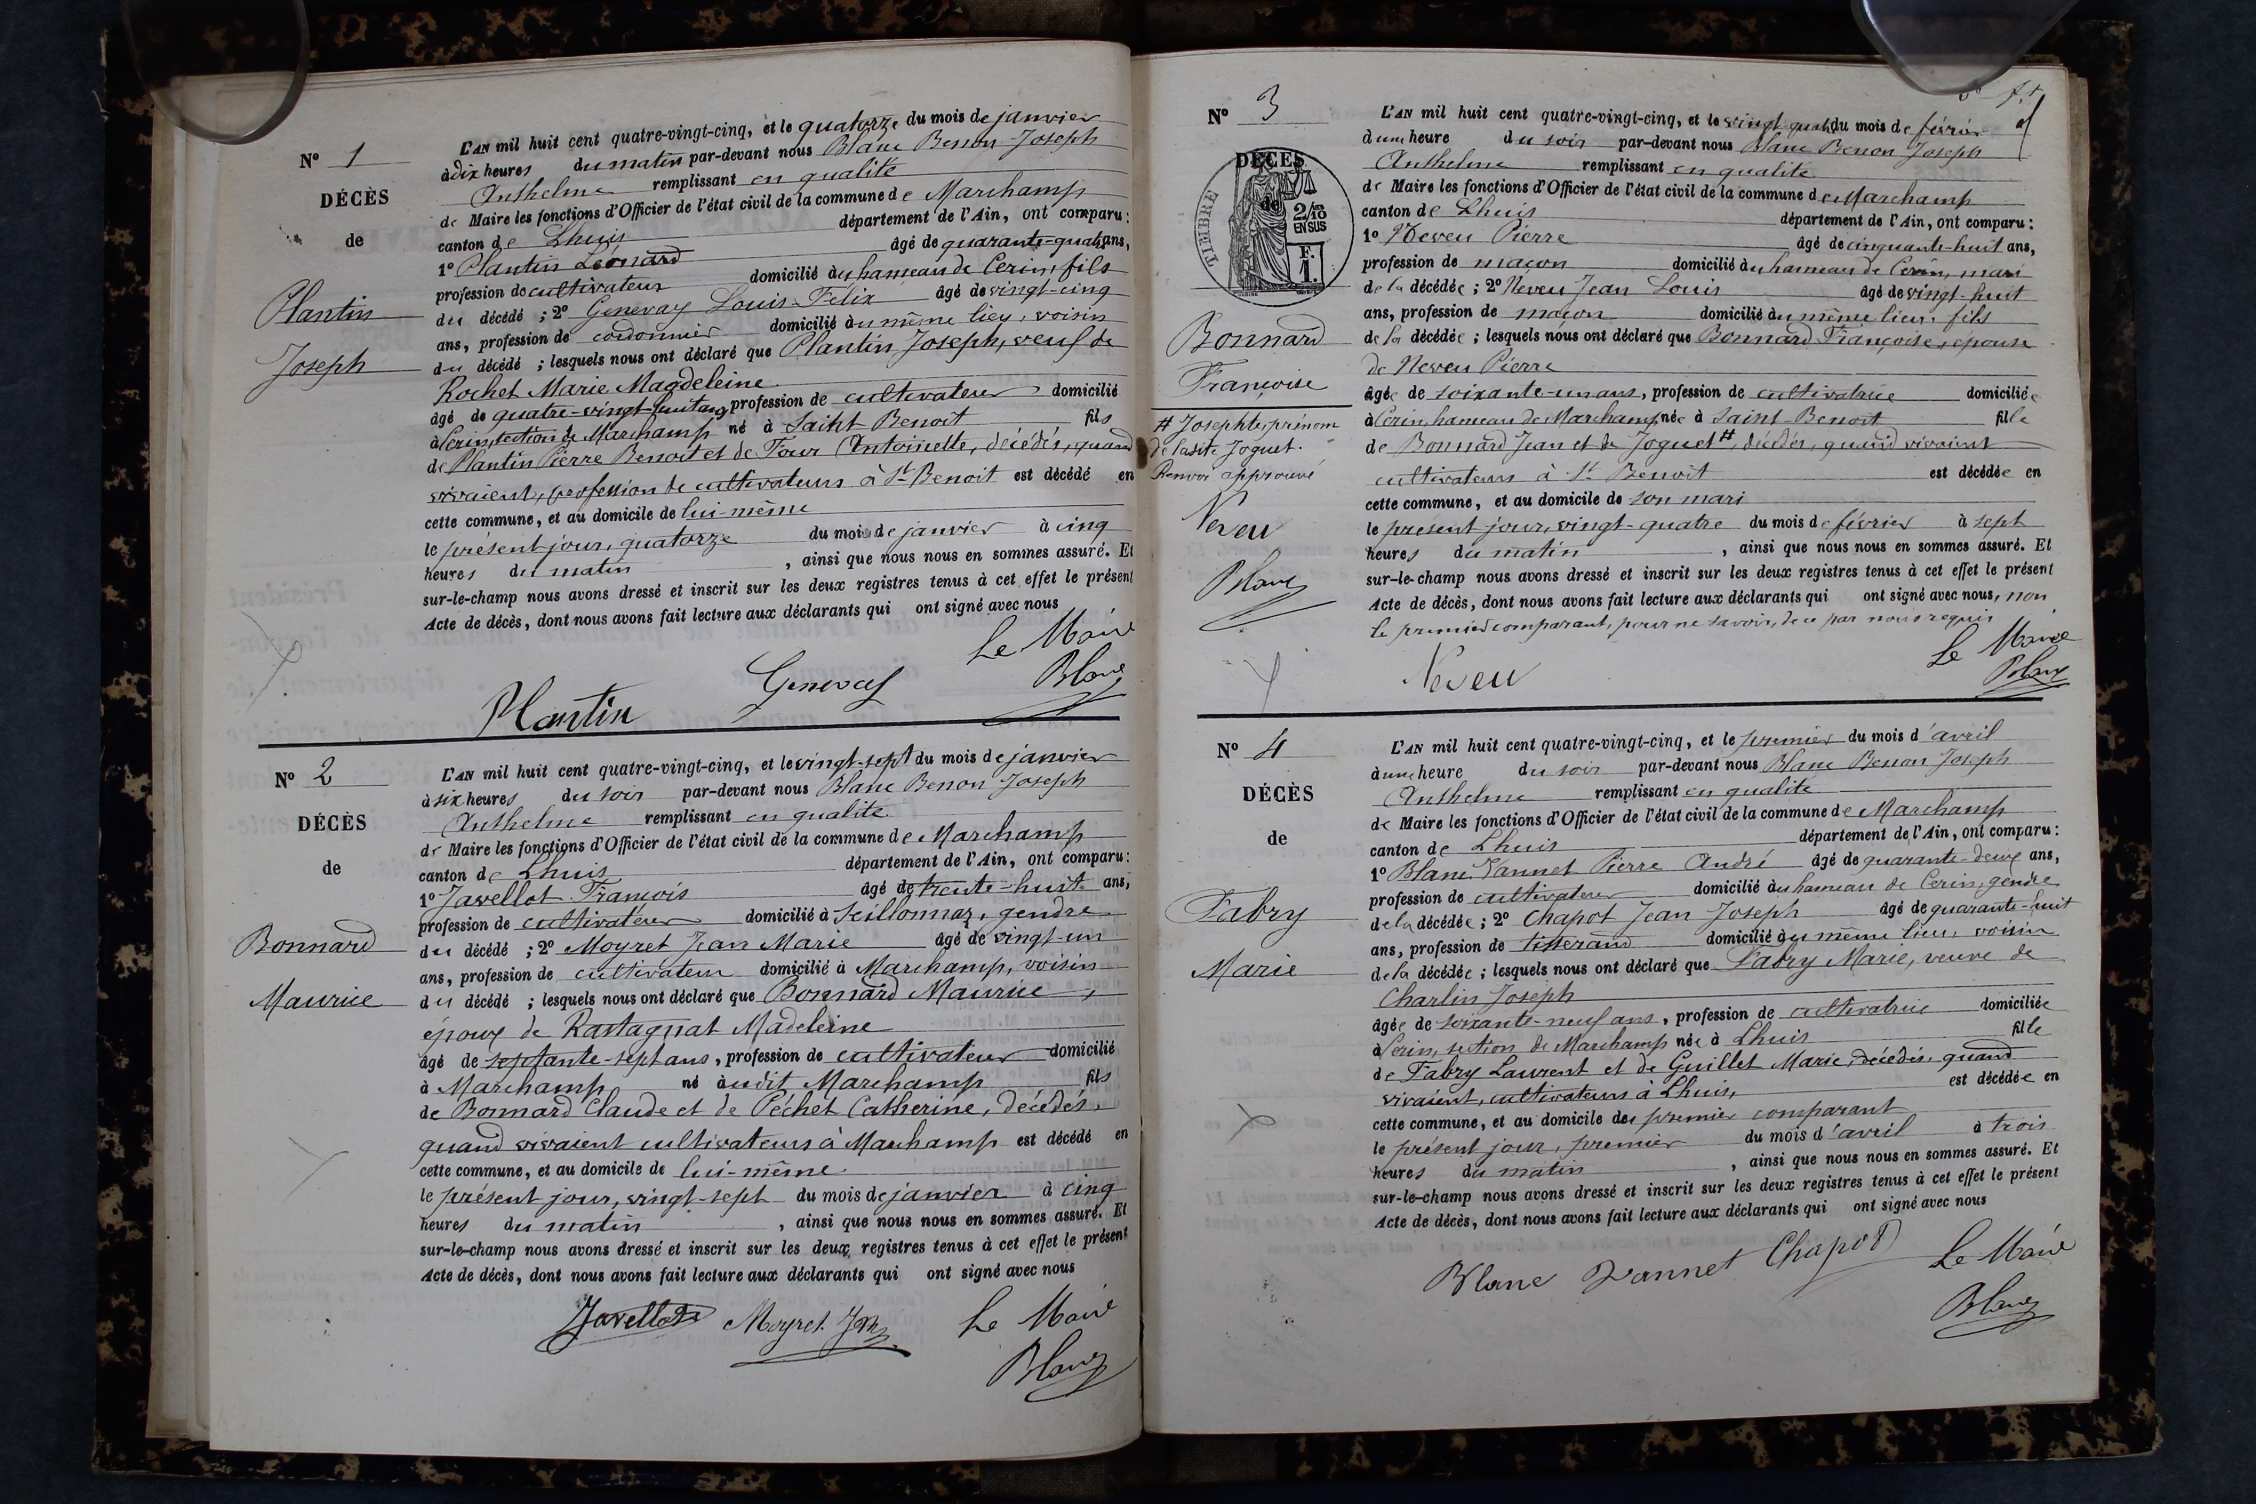 N° 1
DÉCÈS
de
Plantin
Joseph
L'AN mil huit cent quatre-vingt-cinq, et le quatorze du mois de janvier
à dix heures du matin par-devant nous Blanc Benon Joseph
Anthelme remplissant en qualité
de Maire les fonctions d'Officier de l'état civil de la commune de Marchamp
canton de Lhuis département de l'Ain, ont comparu :
1° Plantin Léonard âgé de quarante-quatre ans,
profession de cultivateur domicilié au hameau de Cerin, fils
du décédé ; 2° Genevay Louis-Félix âgé de vingt-cinq
ans, profession de cordonnier domicilié au même lieu, voisin
du décédé ; lesquels nous ont déclaré que Plantin Joseph, veuf de
Rochet Marie Magdeleine
âgé de quatre-vingt-huit ans, profession de cultivateur domicilié
à Cerin, section de Marchamp né à Saint Benoit fils
de Plantin Pierre Benoit et de Four Antoinette, décédés, quand
vivaient, profession de cultivateurs à St Benoit est décédé en
cette commune, et au domicile de lui-même
le présent jour, quatorze du mois de janvier à cinq
heures du matin , ainsi que nous nous en sommes assuré. Et
sur-le-champ nous avons dressé et inscrit sur les deux registres tenus à cet effet le présent
Acte de décès, dont nous avons fait lecture aux déclarants qui ont signé avec nous
Le Maire
Plantin Genevay Blanc
N° 2
DÉCÈS
de
Bonnard
Maurice
L'AN mil huit cent quatre-vingt-cinq, et le vingt-sept du mois de janvier
à six heures du soir par-devant nous Blanc Benon Joseph
Anthelme remplissant en qualité
de Maire les fonctions d'Officier de l'état civil de la commune de Marchamp
canton de Lhuis département de l'Ain, ont comparu :
1° Javellot François âgé de trente-huit ans,
profession de cultivateur domicilié à Seillonnaz, gendre
du décédé ; 2° Moyret Jean Marie âgé de vingt-un
ans, profession de cultivateur domicilié à Marchamp, voisin
du décédé ; lesquels nous ont déclaré que Bonnard Maurice,
époux de Rastagnat Madeleine
âgé de septante-sept ans, profession de cultivateur domicilié
à Marchamp né audit Marchamp fils
de Bonnard Claude et de Péchet Catherine, décédés,
quand vivaient cultivateurs à Marchamp est décédé en
cette commune, et au domicile de lui-même
le présent jour, vingt-sept du mois de janvier à cinq
heures du matin , ainsi que nous nous en sommes assuré. Et
sur-le-champ nous avons dressé et inscrit sur les deux registres tenus à cet effet le présent
Acte de décès, dont nous avons fait lecture aux déclarants qui ont signé avec nous
Javellot Moyret Le Maire
Blanc
N° 3
DÉCÈS
de
TIMBRE
2/10
EN SUS
F.
1.
Bonnard
Françoise
# Josephte, prénom
de ladite Joguet.
Renvoi approuvé
Neveu
Blanc
L'AN mil huit cent quatre-vingt-cinq, et le vingt quatre du mois de février
à une heure du soir par-devant nous Blanc Benon Joseph
Anthelme remplissant en qualité
de Maire les fonctions d'Officier de l'état civil de la commune de Marchamp
canton de Lhuis département de l'Ain, ont comparu :
1° Neveu Pierre âgé de cinquante-huit ans,
profession de maçon domicilié au hameau de Cerin, mari
de la décédée ; 2° Neveu Jean Louis âgé de vingt-huit
ans, profession de maçon domicilié au même lieu, fils
de la décédée ; lesquels nous ont déclaré que Bonnard Françoise, épouse
de Neveu Pierre
âgée de soixante-un ans, profession de cultivatrice domiciliée
à Cerin, hameau de Marchamp, née à Saint-Benoit fille
de Bonnard Jean et de Joguet #, décédés, quand vivaient
cultivateurs à St Benoit est décédée en
cette commune, et au domicile de son mari
le présent jour, vingt-quatre du mois de février à sept
heures du matin , ainsi que nous nous en sommes assuré. Et
sur-le-champ nous avons dressé et inscrit sur les deux registres tenus à cet effet le présent
Acte de décès, dont nous avons fait lecture aux déclarants qui ont signé avec nous, non
le premier comparant, pour ne savoir, de ce par nous requis
Neveu Le Maire
Blanc
N° 4
DÉCÈS
de
Fabry
Marie
L'AN mil huit cent quatre-vingt-cinq, et le premier du mois d'avril
à une heure du soir par-devant nous Blanc Benon Joseph
Anthelme remplissant en qualité
de Maire les fonctions d'Officier de l'état civil de la commune de Marchamp
canton de Lhuis département de l'Ain, ont comparu :
1° Blanc Vannet Pierre André âgé de quarante-deux ans,
profession de cultivateur domicilié au hameau de Cerin, gendre
de la décédée ; 2° Chapot Jean Joseph âgé de quarante-huit
ans, profession de tisserand domicilié au même lieu, voisin
de la décédée ; lesquels nous ont déclaré que Fabry Marie, veuve de
Charlin Joseph
âgée de soixante-neuf ans, profession de cultivatrice domiciliée
à Cerin, section de Marchamp née à Lhuis fille
de Fabry Laurent et de Guillet Marie, décédés, quand
vivaient, cultivateurs à Lhuis, est décédée en
cette commune, et au domicile du premier comparant
le présent jour, premier du mois d'avril à trois
heures du matin , ainsi que nous nous en sommes assuré. Et
sur-le-champ nous avons dressé et inscrit sur les deux registres tenus à cet effet le présent
Acte de décès, dont nous avons fait lecture aux déclarants qui ont signé avec nous
Blanc Vannet Chapot Le Maire
Blanc